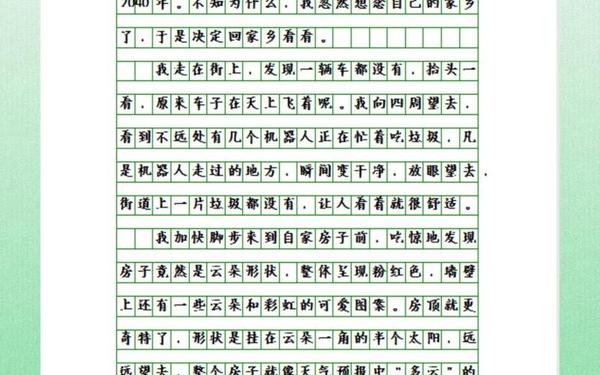 2040年。不知为什么，我忽然想念自己的家乡
了，于是决定回家乡看看。
我走在街上，发现一辆车都没有，抬头一
看，原来车子在天上飞着呢。我向四周望去，
看到不远处有几个机器人正在忙着吃垃圾，凡
是机器人走过的地方，瞬间变干净，放眼望去，
街道上一片垃圾都没有，让人看着就很舒适。
我加快脚步来到自家房子前，吃惊地发现
房子竟然是云朵形状，整体呈现粉红色，墙壁
上还有一些云朵和彩虹的可爱图案。房顶就更
奇特了，形状是挂在云朵一角的半个太阳，远
远望去，整个房子就像天气预报中“多云”的